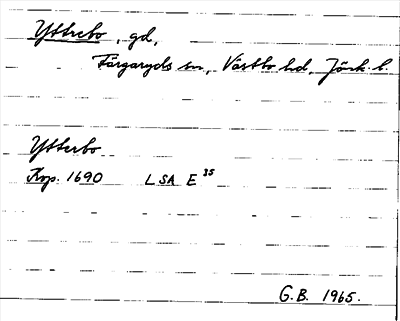 Yttrebo, gd,
Färgaryds sn, Västbo hd, Jönk. l.
Ytterbo
Kop. 1690 LSA E 35
G.B. 1965.